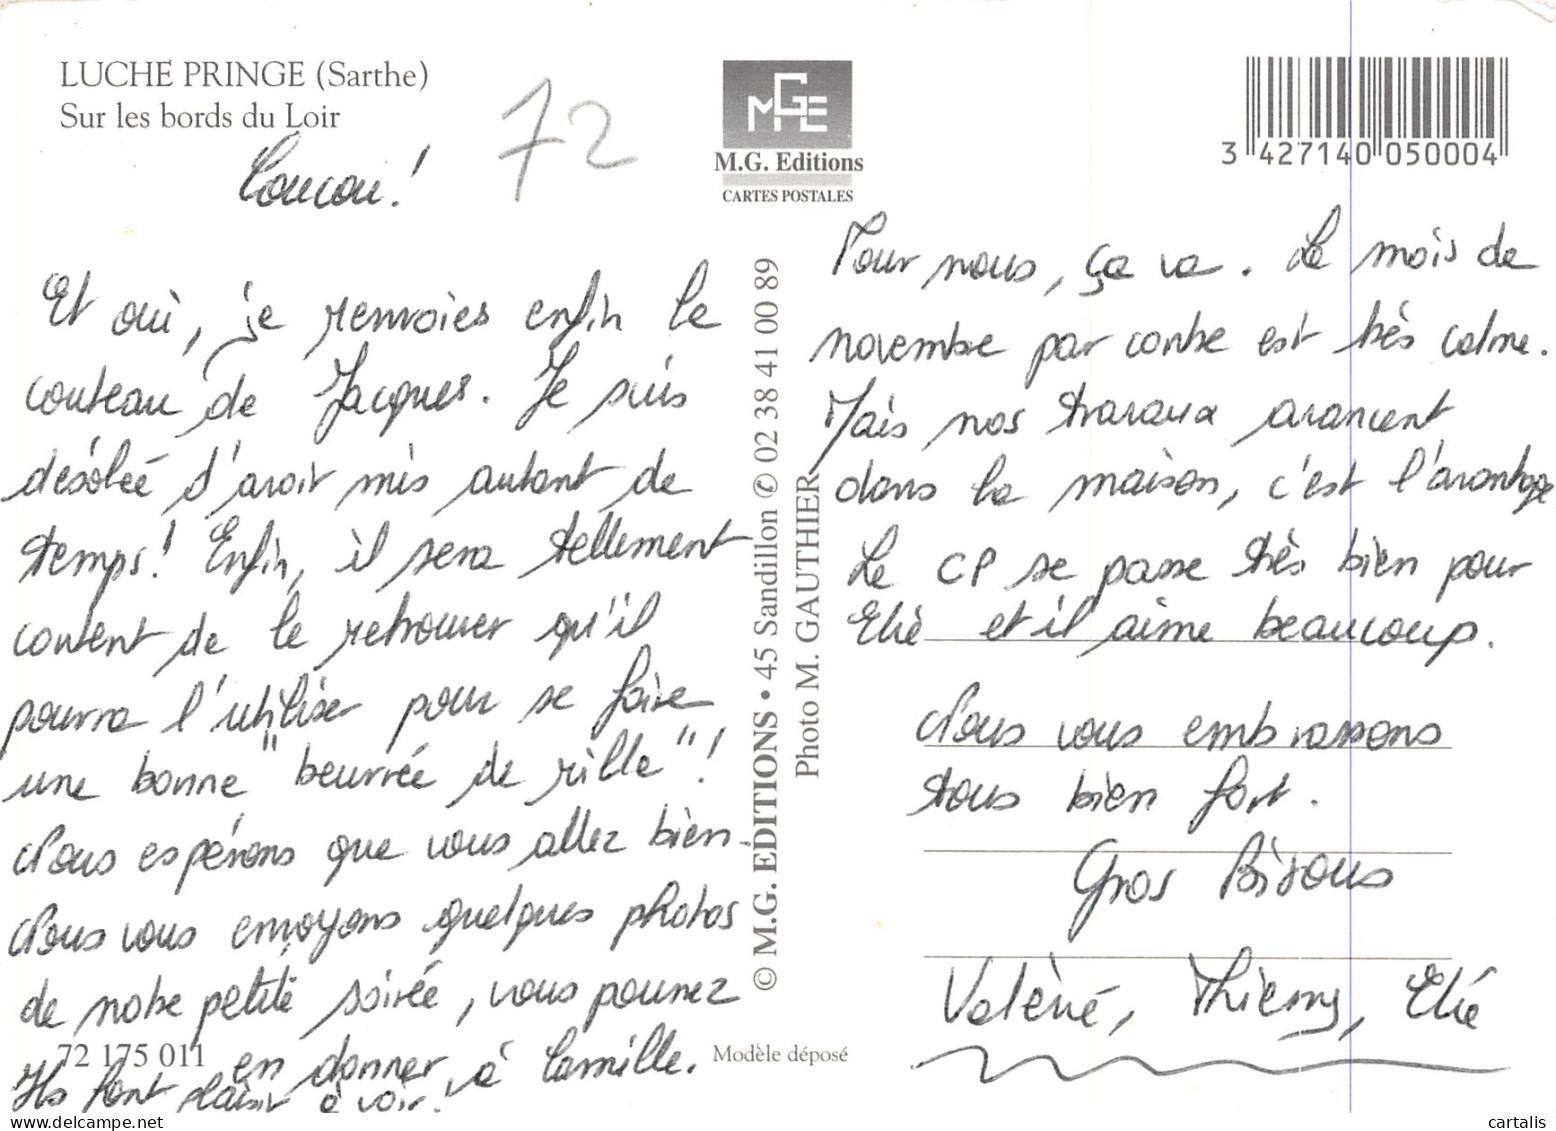 LUCHE PRINGE (Sarthe)
Sur les bords du Loir
72
M.G. Editions
CARTES POSTALES
3 427140 050004
Coucou!
Et oui, je renvoies enfin le
couteau de Jacques. Je suis
désolée d'avoir mis autant de
temps! Enfin, il sera tellement
content de le retrouver qu'il
pourra l'utiliser pour se faire
une bonne "beurrée de rille"!
Nous espérons que vous allez bien.
Nous vous envoyons quelques photos
de notre petite soirée, vous pourrez
en donner à Camille.
Ils font plaisir à voir!
72 175 011
Modèle déposé
© M.G. EDITIONS • 45 Sandillon ✆ 02 38 41 00 89
Photo M. GAUTHIER
Pour nous, ça va. Le mois de
novembre par contre est très calme.
Mais nos travaux avancent
dans la maison, c'est l'avantage
Le CP se passe très bien pour
Elie et il aime beaucoup.
Nous vous embrassons
tous bien fort.
Gros Bisous
Valérie, Thierry, Elie
cartalis
www.delcampe.net